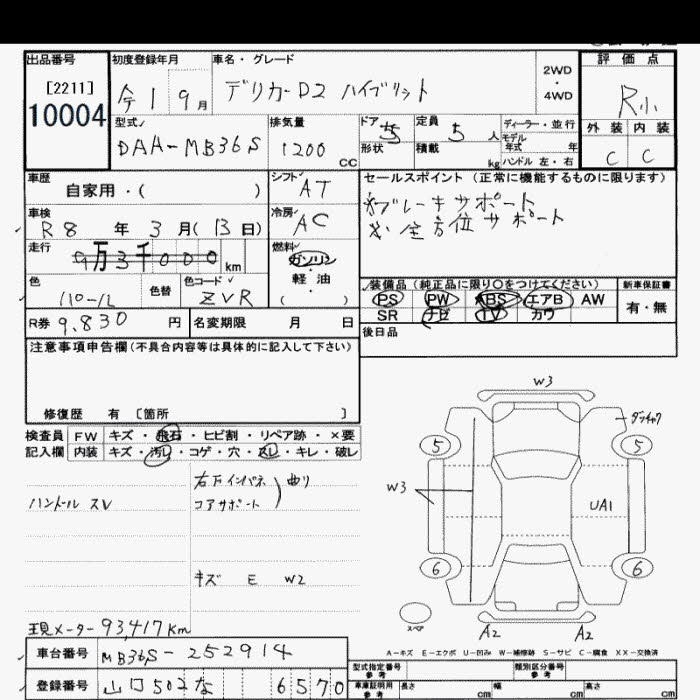 出品番号
[2211]
10004
初度登録年月
令1 9月
車名・グレード
デリカーD2 ハイブリット
2WD
・
4WD
評価点
R小
外装 内装
C C
型式
DAA-MB36S
排気量
1200 CC
ドア 5
形状
定員 5 人
積載 kg
ディーラー・並行
モデル
年式 年
ハンドル 左・右
車歴
自家用・( )
シフト AT
車検
R8 年 3 月(13日)
冷房 AC
走行
9万3千000 km
燃料
ガソリン
・
軽油
( )
色
色替
色コード
ZVR
R券 9,830 円
名変期限 月 日
セールスポイント(正常に機能するものに限ります)
*ブレーキサポート
*全方位サポート
装備品(純正品に限り〇をつけてください)
PS PW ABS エアB AW
SR ナビ TV カワ
新車保証書
有・無
後日品
注意事項申告欄(不具合内容等は具体的に記入して下さい)
修復歴 有 〔箇所 〕
検査員
記入欄
FW キズ・飛石・ヒビ割・リペア跡・×要
内装 キズ・汚レ・コゲ・穴・スレ・キレ・破レ
ハンドル スレ
右下インパネ
コアサポート
曲り
キズ E W2
現メーター 93,417Km
車台番号 MB36S-252914
登録番号 山口502な 6570
W3
5
5
W3
UA1
6
6
スペア
A2
A2
A-キズ E-エクボ U-凹み W-補修跡 S-サビ C-腐食 XX-交換済
型式指定番号
参考
類別区分番号
参考
車庫証明用
参考
長さ cm
幅 cm
高さ cm